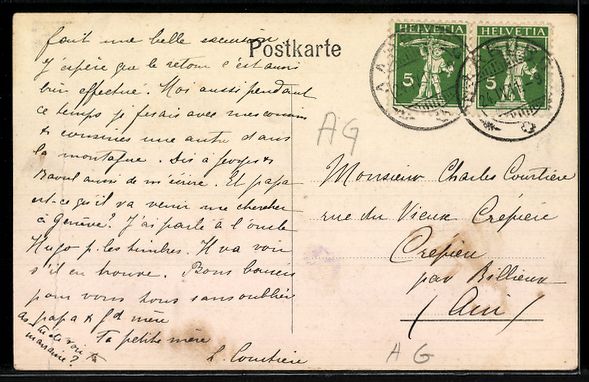 Postkarte
HELVETIA
5
HELVETIA
5
AG
fait une belle excursion
J'espère que le retour s'est aussi
bien effectué. Moi aussi pendant
ce temps je fesais avec mes cousins
& cousines une autre dans
la montagne. Dis à georges &
Raoul aussi de m'écrire. Et papa
est-ce qu'il va venir me chercher
à Genève? J'ai parlé à l'oncle
Hugo p. les timbres. Il va voir
s'il en trouve. Bons baisers
pour vous tous sans oublier
papa & gd mère
Ta petite
L. Courtière
as-tu
marraine?
Monsieur Charles Courtière
rue du Vieux Crépieu
Crépieu
par Billieux
(Ain)
AG